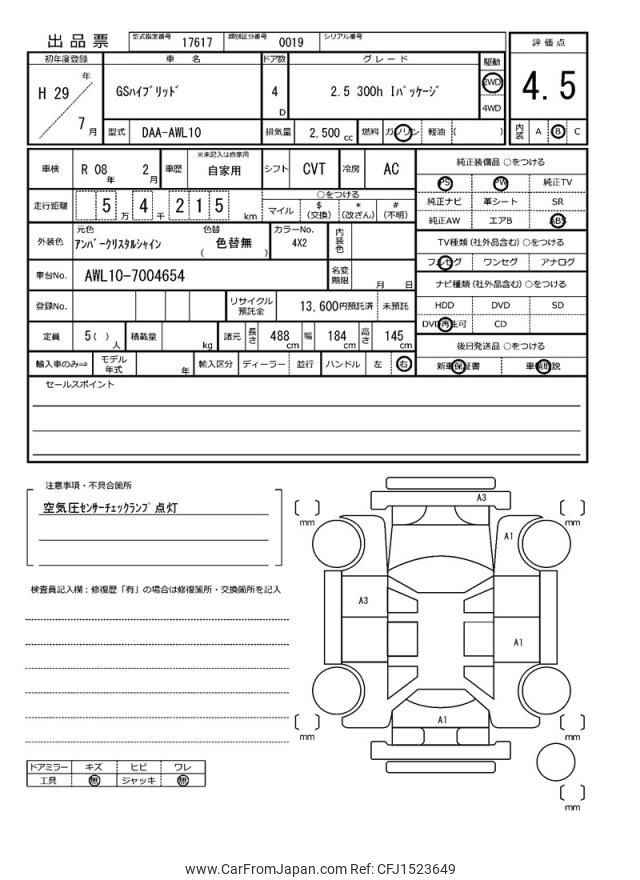 出品票 型式指定番号 17617 類別区分番号 0019 シリアル番号
評価点
4.5
内装 A B C
初年度登録 車名 ドア数 グレード 駆動
H 29 年 7 月
GSハイブリッド 4 D 2.5 300h Iパッケージ 2WD 4WD
型式 DAA-AWL10 排気量 2,500 cc 燃料 ガソリン 軽油 ( )
車検 R 08 年 2 月 車歴 ※未記入は自家用 自家用 シフト CVT 冷房 AC
走行距離 5 万 4 千 2 1 5 km ○をつける
マイル $ (交換) * (改ざん) # (不明)
外装色 元色 アンバークリスタルシャイン 色替 ( 色替無 ) カラーNo. 4X2 内装色
車台No. AWL10-7004654 名変期限 月 日
登録No. リサイクル預託金 13,600円預託済 未預託
定員 5( ) 人 積載量 kg 諸元 長さ 488 cm 幅 184 cm 高さ 145 cm
輸入車のみ⇒ モデル年式 年 輸入区分 ディーラー 並行 ハンドル 左 右
純正装備品 ○をつける
PS PW 純正TV
純正ナビ 革シート SR
純正AW エアB ABS
TV種類 (社外品含む) ○をつける
フルセグ ワンセグ アナログ
ナビ種類 (社外品含む) ○をつける
HDD DVD SD
DVD再生可 CD
後日発送品 ○をつける
新車保証書 車輌取説
セールスポイント
注意事項・不具合箇所
空気圧センサーチェックランプ点灯
検査員記入欄:修復歴「有」の場合は修復箇所・交換箇所を記入
ドアミラー キズ ヒビ ワレ
工具 無 ジャッキ 無
A3
mm
mm
A1
A3
A1
A1
mm
mm
mm
www.CarFromJapan.com Ref: CFJ1523649